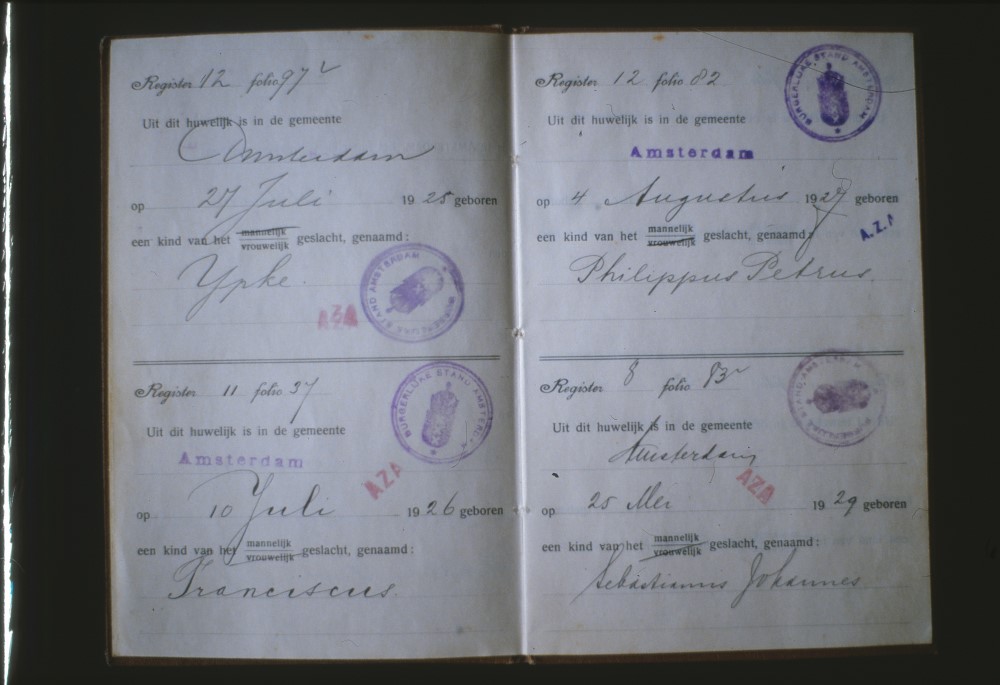 Register 12 folio 97
Uit dit huwelijk is in de gemeente
Amsterdam
op 27 Juli 1925 geboren
een kind van het mannelijk
vrouwelijk geslacht, genaamd:
Ypke.
BURGERLIJKE STAND AMSTERDAM
AZA
Register 11 folio 37
BURGERLIJKE STAND AMSTERDAM
Uit dit huwelijk is in de gemeente
Amsterdam
AZA
op 10 Juli 1926 geboren
een kind van het mannelijk
vrouwelijk geslacht, genaamd:
Franciscus.
Register 12 folio 82
BURGERLIJKE STAND AMSTERDAM
Uit dit huwelijk is in de gemeente
Amsterdam
op 4 Augustus 1927 geboren
A.Z.A
een kind van het mannelijk
vrouwelijk geslacht, genaamd:
Philippus Petrus.
Register 8 folio
BURGERLIJKE STAND AMSTERDAM
Uit dit huwelijk is in de gemeente
Amsterdam
AZA
op 25 Mei 1929 geboren
een kind van het mannelijk
vrouwelijk geslacht, genaamd:
Sebastianus Johannes.